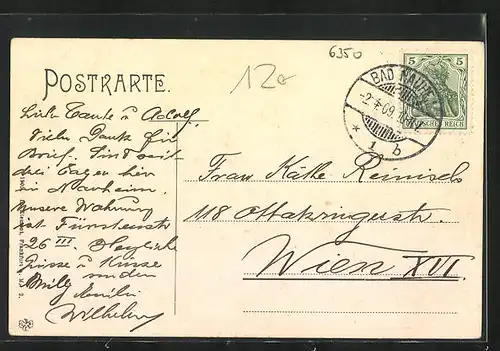 6350
12e
POSTKARTE.
5 5
DEUTSCHES REICH
BAD NAUHEIM
-2.4.09.
* 1 b
Liebe Tante u Adolf.
Vielen Dank für
Brief. Sind seit
drei Tagen hier
in Nauheim.
Unsere Wohnung
ist Fürstenstr
26 III. Herzliche
Grüsse u Küsse
Willy
Wilhelm
Frau Käthe Reinisch
118 Ottakringerstr.
Wien XVI.